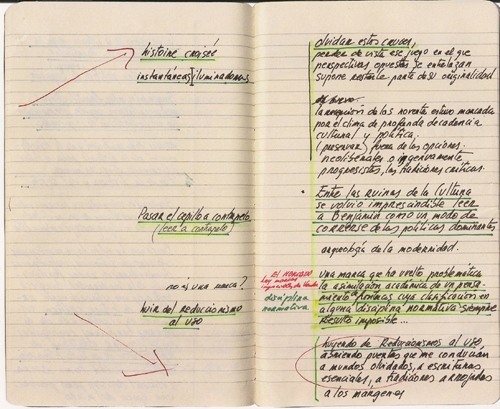 histoire croisée
instantáneas iluminadoras
Pasar el cepillo a contrapelo
(leer a contrapelo)
no es una marca?
huir del reduccionismo
al uso
olvidar estos cruces,
perder de vista ese juego en el que
perspectivas opuestas se entrelazan
supone restarle parte de su originalidad
la recepción de los noventa estuvo marcada
por el clima de profunda decadencia
cultural y política.
(preservar) fuera de las opciones
neoliberales o ingenuamente
progresistas, las tradiciones críticas.
Entre las ruinas de la cultura
se volvió imprescindible leer
a Benjamin como un modo de
correrse de las políticas dominantes
arqueología de la modernidad.
EL HORROR
hay marcas
disciplina
normativa
una marca que ha vuelto problemática
la asimilación académica de un pensa-
miento cuya clasificación en
alguna disciplina normativa siempre
resultó imposible...
huyendo de Reduccionismos al uso,
abriendo puentes que me conducían
a mundos olvidados, a escrituras
esenciales, a tradiciones arrojadas
a los márgenes